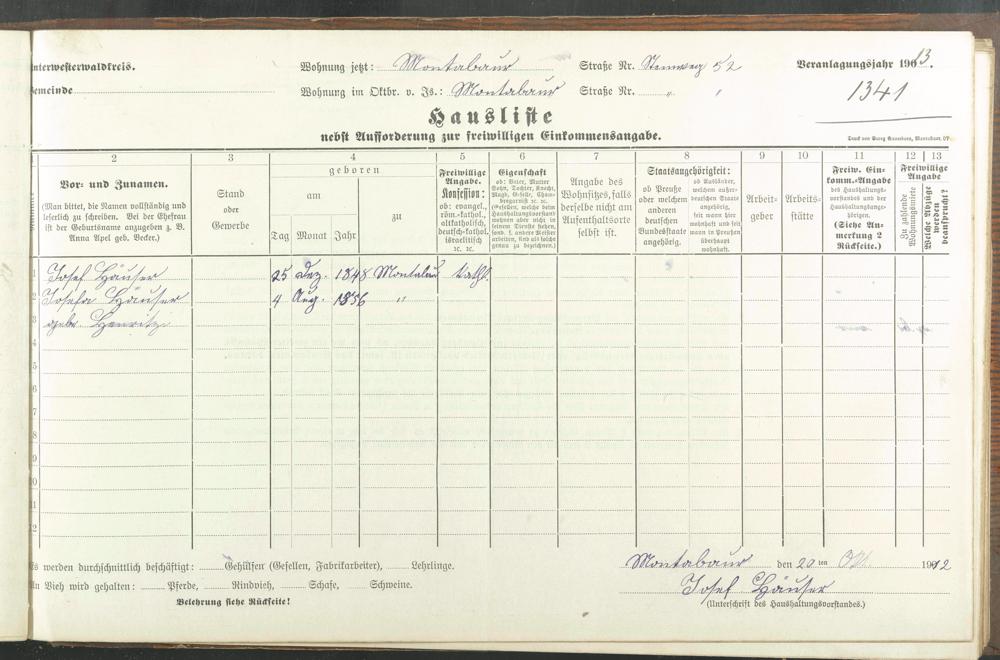 Unterwesterwaldkreis. Wohnung jetzt: Montabaur Straße Nr. Steinweg 52 Veranlagungsjahr 1913.
Gemeinde Wohnung im Oktbr. v. Js.: Montabaur Straße Nr. " " 1341
Hausliste
nebst Aufforderung zur freiwilligen Einkommensangabe.
2 3 4 5 6 7 8 9 10 11 12 13
Vor- und Zunamen.
(Man bittet, die Namen vollständig und
leserlich zu schreiben. Bei der Ehefrau
ist der Geburtsname anzugeben z. B.
Anna Apel geb. Becker.)
Stand
oder
Gewerbe
geboren
am zu
Tag Monat Jahr
Freiwillige
Angabe.
Konfession:
ob: evangel.,
röm.-kathol.,
altkatholisch,
deutsch-kathol.
israelitisch
ꝛc. ꝛc.
Eigenschaft
ob: Vater, Mutter
Sohn, Tochter, Knecht,
Magd, Geselle, Cham-
bregarnist ꝛc. ꝛc.
(Gesellen, welche beim
Haushaltungsvorstand
wohnen aber nicht in
seinem Dienste stehen,
sind als solche
genau zu bezeichnen.)
Angabe des
Wohnsitzes, falls
derselbe nicht am
Aufenthaltsorte
selbst ist.
Staatsangehörigkeit:
ob Preuße
oder welchem
anderen
deutschen
Bundesstaate
angehörig.
ob Ausländer,
welchem außer-
deutschen Staate
angehörig,
seit wann hier
wohnhaft und seit
wann in Preußen
überhaupt
wohnhaft.
Arbeit-
geber
Arbeits-
stätte
Freiw. Ein-
komm.-Angabe
des Haushaltungs-
vorstandes und der
Haushaltungsange-
hörigen.
(Siehe An-
merkung 2
Rückseite.)
Freiwillige
Angabe
Zu zahlende
Wohnungsmiete
Welche Abzüge
werden
beansprucht?
1 Josef Häuser 25 Dez. 1848 Montabaur kath.
2 Josefa Häuser 4 Aug. 1856 "
3 gebr. Henritzi
4
5
6
7
8
9
10
11
12
Es werden durchschnittlich beschäftigt: Gehülfen (Gesellen, Fabrikarbeiter), Lehrlinge.
An Vieh wird gehalten: Pferde, Rindvieh, Schafe, Schweine.
Belehrung siehe Rückseite!
Montabaur den 20 ten Okt. 1912
Josef Häuser
(Unterschrift des Haushaltungsvorstandes.)